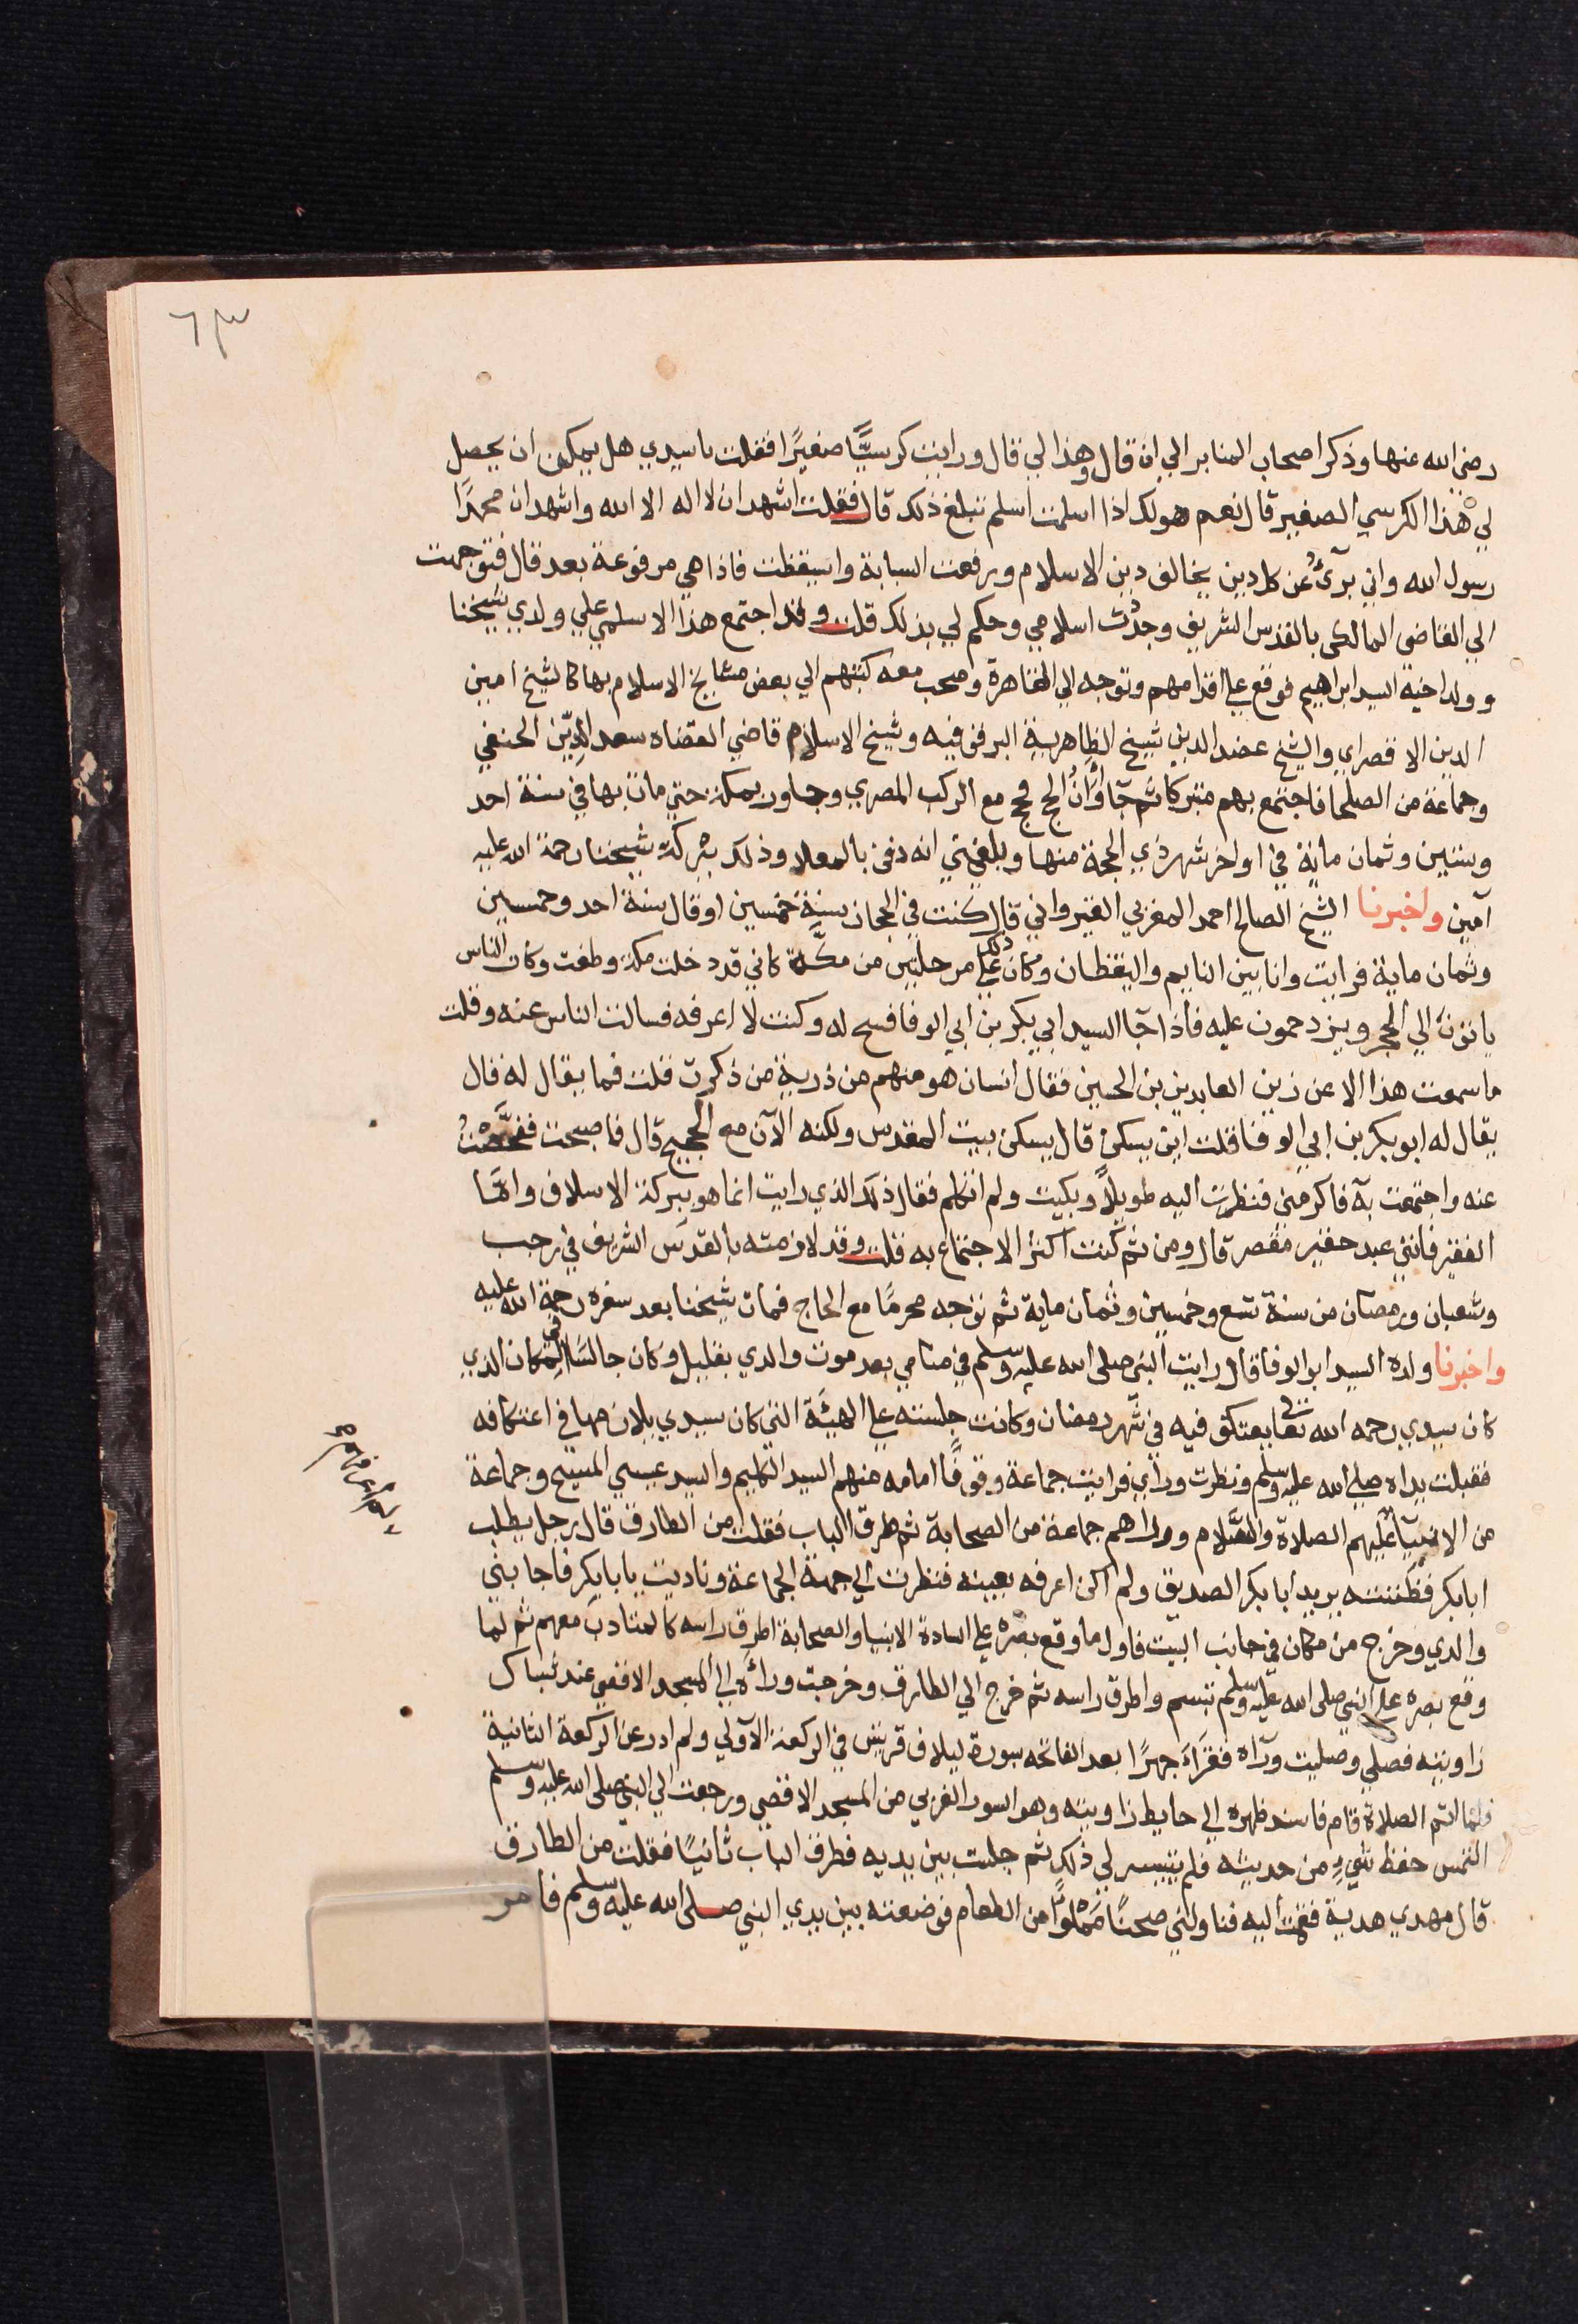 ٦٣
رضي الله عنها وذكر اصحاب المنابر الي ان قال وهذا لي قال ورايت كرسيًّا صغيرًا فقلت يا سيدي هل يمكن ان يحصل
لي هذا الكرسي الصغير قال نعم هو لك اذا اسلمت اسلم تبلغ ذلك قال فقلت اشهد ان لا اله الا الله واشهد ان محمدًا
رسول الله واني برئٌ عن كل دين يخالف دين الاسلام ورفعت السبابة واستيقظت فاذا هي مرفوعة بعد قال فتوجهت
الي القاضي المالكي بالقدس الشريف وجددت اسلامي وحكم لي بذلك قلت وقد اجتمع هذا الاسلمي علي ولدي شيخنا
وولد اخيه السيد ابراهيم فوقع علي اقدامهم وتوجه الي القاهرة وصحب معه كتبهم الي بعض مشايخ الاسلام بها كالشيخ امين
الدين الاقصراي والشيخ عضد الدين شيخ الظاهرية البرقوقيه وشيخ الاسلام قاضي القضاه سعد الدين الحنفي
وجماعة من الصلحا فاجتمع بهم متبركا ثم جا اوان الحج فحج مع الركب المصري وجاور بمكة حتي مات بها في سنة احد
وستين وثمان ماية في اواخر شهر ذي الحجة منها وبلغني انه دفن بالمعلا وذلك ببركة شيخنا رحمة الله عليه
آمين واخبرنا الشيخ الصالح احمد المغربي القيرواني قال كنت في الحجاز سنة خمسين او قال سنة احد وخمسين
وثمان ماية فرايت وانا بين النايم واليقظان وكان ذلك علي مرحلتين من مكة كاني قد دخلت مكة وطفت وكان الناس
ياتون الي الحجر ويزدحمون عليه فاذا جا السيد ابي بكر بن ابي الوفا فسح له وكنت لا اعرفه فسالت الناس عنه وقلت
ما سمعت هذا الا عن زين العابدين بن الحسين فقال انسان هو منهم من ذرية من ذكرت قلت فما يقال له قال
يقال له ابو بكر بن ابي الوفا قلت اين يسكن قال يسكن بيت المقدس ولكنه الآن مع الحجيج قال فاصبحت ففحصت
عنه واجتمعت به فاكرمني فنظرت اليه طويلاً وبكيت ولم اتكلم فقال ذلك الذي رايت انما هو ببركة الاسلاف واما
الفقير فانني عبد حقير مقصر قال ومن ثم كنت اكثر الاجتماع به قلت وقد لازمته بالقدس الشريف في رجب
وشعبان ورمضان من سنة تسع وخمسين وثمان ماية ثم توجه محرمًا مع الحاج فمات شيخنا بعد سفره رحمة الله عليه
واخبرنا ولده السيد ابو الوفا قال رايت النبي صلى الله عليه وسلم في منامي بعد موت والدي بقليل وكان جالسًا في المكان الذي
كان سيدي رحمه الله تعالي يعتكف فيه في شهر رمضان وكانت جلسته علي الهيئة التي كان سيدي يلازمها في اعتكافه
فقبلت يداه صلي الله عليه وسلم ونظرت وراي فرايت جماعة وقوفًا امامه منهم السيد الكليم والسيد عيسي المسيح وجماعة
من الانبيآ عليهم الصلاة والسلام ووراهم جماعة من الصحابة ثم طرق الباب فقلت من الطارق قال رجل يطلب
ابا بكر فظننته يريد ابا بكر الصديق ولم اكن اعرفه بعينه فنظرت الي جهة الجماعة وناديت يا با بكر فاجابني
والدي وخرج من مكان في جانب البيت فاول ما وقع بصره علي السادة الانبيا والصحابة اطرق راسه كالمتادب معهم ثم لما
وقع بصره علي النبي صلى الله عليه وسلم تبسم واطرق راسه ثم خرج الي الطارق وخرجت وراه الي المسجد الاقصي عند شباك
زاويته فصلي وصليت ورآه فقرا جهرًا بعد الفاتحه سورة ليلاف قريش في الركعة الآولي ولم ادر عن الركعة الثانية
فلما اتم الصلاة قام فاسند ظهره الي حايط زاويته وهو السور الغربي من المسجد الاقصي ورجعت الي النبي صلى الله عليه وسلم
التمس حفظ شي من حديثه فلم يتيسر لي ذلك ثم جلست بين يديه فطرق الباب ثانيًا فقلت من الطارق
قال مهدي هدية فقمت اليه فناولني صحنًا مملوًا من الطعام فوضعته بين يدي النبي صلى الله عليه وسلم فامر